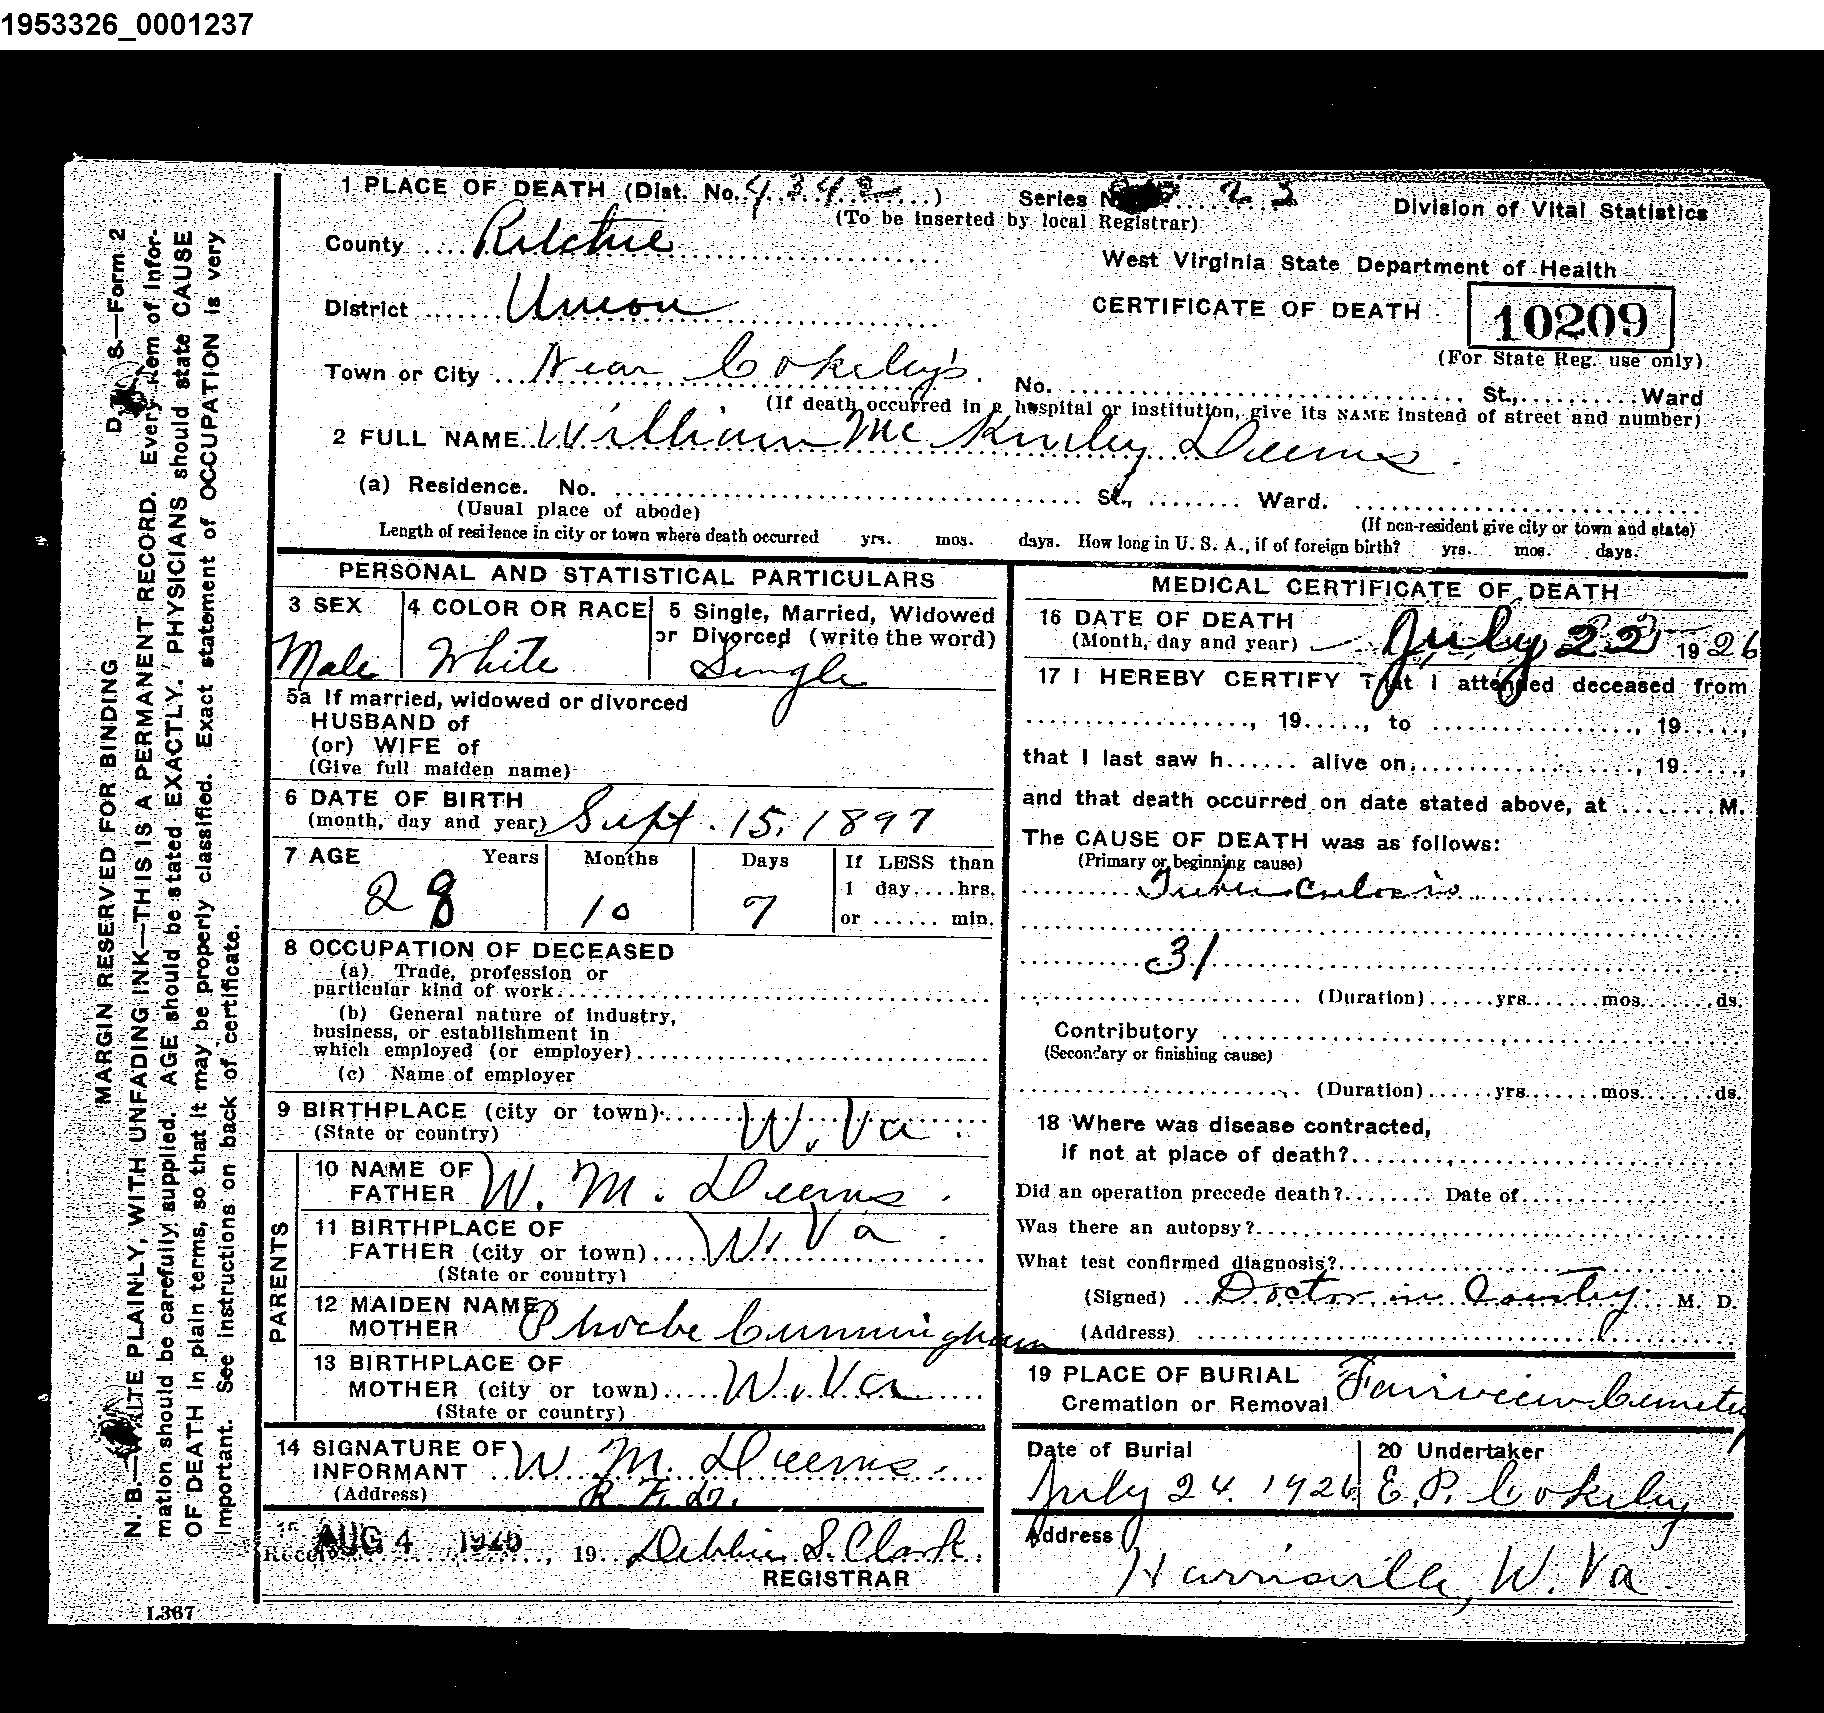 1953326_0001237
1 PLACE OF DEATH (Dist. No. 4342)
Series No. 23
(To be inserted by local Registrar)
Division of Vital Statistics
County Ritchie
West Virginia State Department of Health
District Union
CERTIFICATE OF DEATH
10209
(For State Reg. use only)
Town or City Near Cokeley's.
No. St., Ward
(If death occurred in a hospital or institution, give its NAME instead of street and number)
2 FULL NAME William McKinley Deems.
(a) Residence. No. St., Ward.
(Usual place of abode)
(If non-resident give city or town and state)
Length of residence in city or town where death occurred yrs. mos. days. How long in U. S. A., if of foreign birth? yrs. mos. days.
PERSONAL AND STATISTICAL PARTICULARS
3 SEX
Male
4 COLOR OR RACE
White
5 Single, Married, Widowed
or Divorced (write the word)
Single
5a If married, widowed or divorced
HUSBAND of
(or) WIFE of
(Give full maiden name)
6 DATE OF BIRTH
(month, day and year) Sept. 15, 1897
7 AGE Years Months Days If LESS than
1 day....hrs.
or ...... min.
28 10 7
8 OCCUPATION OF DECEASED
(a) Trade, profession or
particular kind of work
(b) General nature of industry,
business, or establishment in
which employed (or employer)
(c) Name of employer
9 BIRTHPLACE (city or town) W. Va.
(State or country)
PARENTS
10 NAME OF
FATHER W. M. Deems.
11 BIRTHPLACE OF
FATHER (city or town) W. Va.
(State or country)
12 MAIDEN NAME
MOTHER Phoebe Cunningham
13 BIRTHPLACE OF
MOTHER (city or town) W. Va
(State or country)
14 SIGNATURE OF
INFORMANT W. M. Deems.
(Address)
15
AUG 4 19
Debbie S. Clark.
REGISTRAR
MEDICAL CERTIFICATE OF DEATH
16 DATE OF DEATH
(Month, day and year) July 22 1926
17 I HEREBY CERTIFY That I attended deceased from
, 19....., to , 19.....,
that I last saw h...... alive on, , 19.....,
and that death occurred on date stated above, at M.
The CAUSE OF DEATH was as follows:
(Primary or beginning cause)
Tuberculosis
31
(Duration) yrs. mos. ds.
Contributory
(Secondary or finishing cause)
(Duration) yrs. mos. ds.
18 Where was disease contracted,
if not at place of death?
Did an operation precede death? Date of
Was there an autopsy?
What test confirmed diagnosis?
(Signed) Doctor in County M. D.
(Address)
19 PLACE OF BURIAL
Cremation or Removal Fairview Cemetery
Date of Burial
July 24. 1926
20 Undertaker
E. P. Cokeley
Address
Harrisville, W. Va.
MARGIN RESERVED FOR BINDING
N. B.—WRITE PLAINLY, WITH UNFADING INK—THIS IS A PERMANENT RECORD. Every item of infor-
mation should be carefully supplied. AGE should be stated EXACTLY. PHYSICIANS should state CAUSE
OF DEATH in plain terms, so that it may be properly classified. Exact statement of OCCUPATION is very
important. See instructions on back of certificate.
S.—Form 2
L367